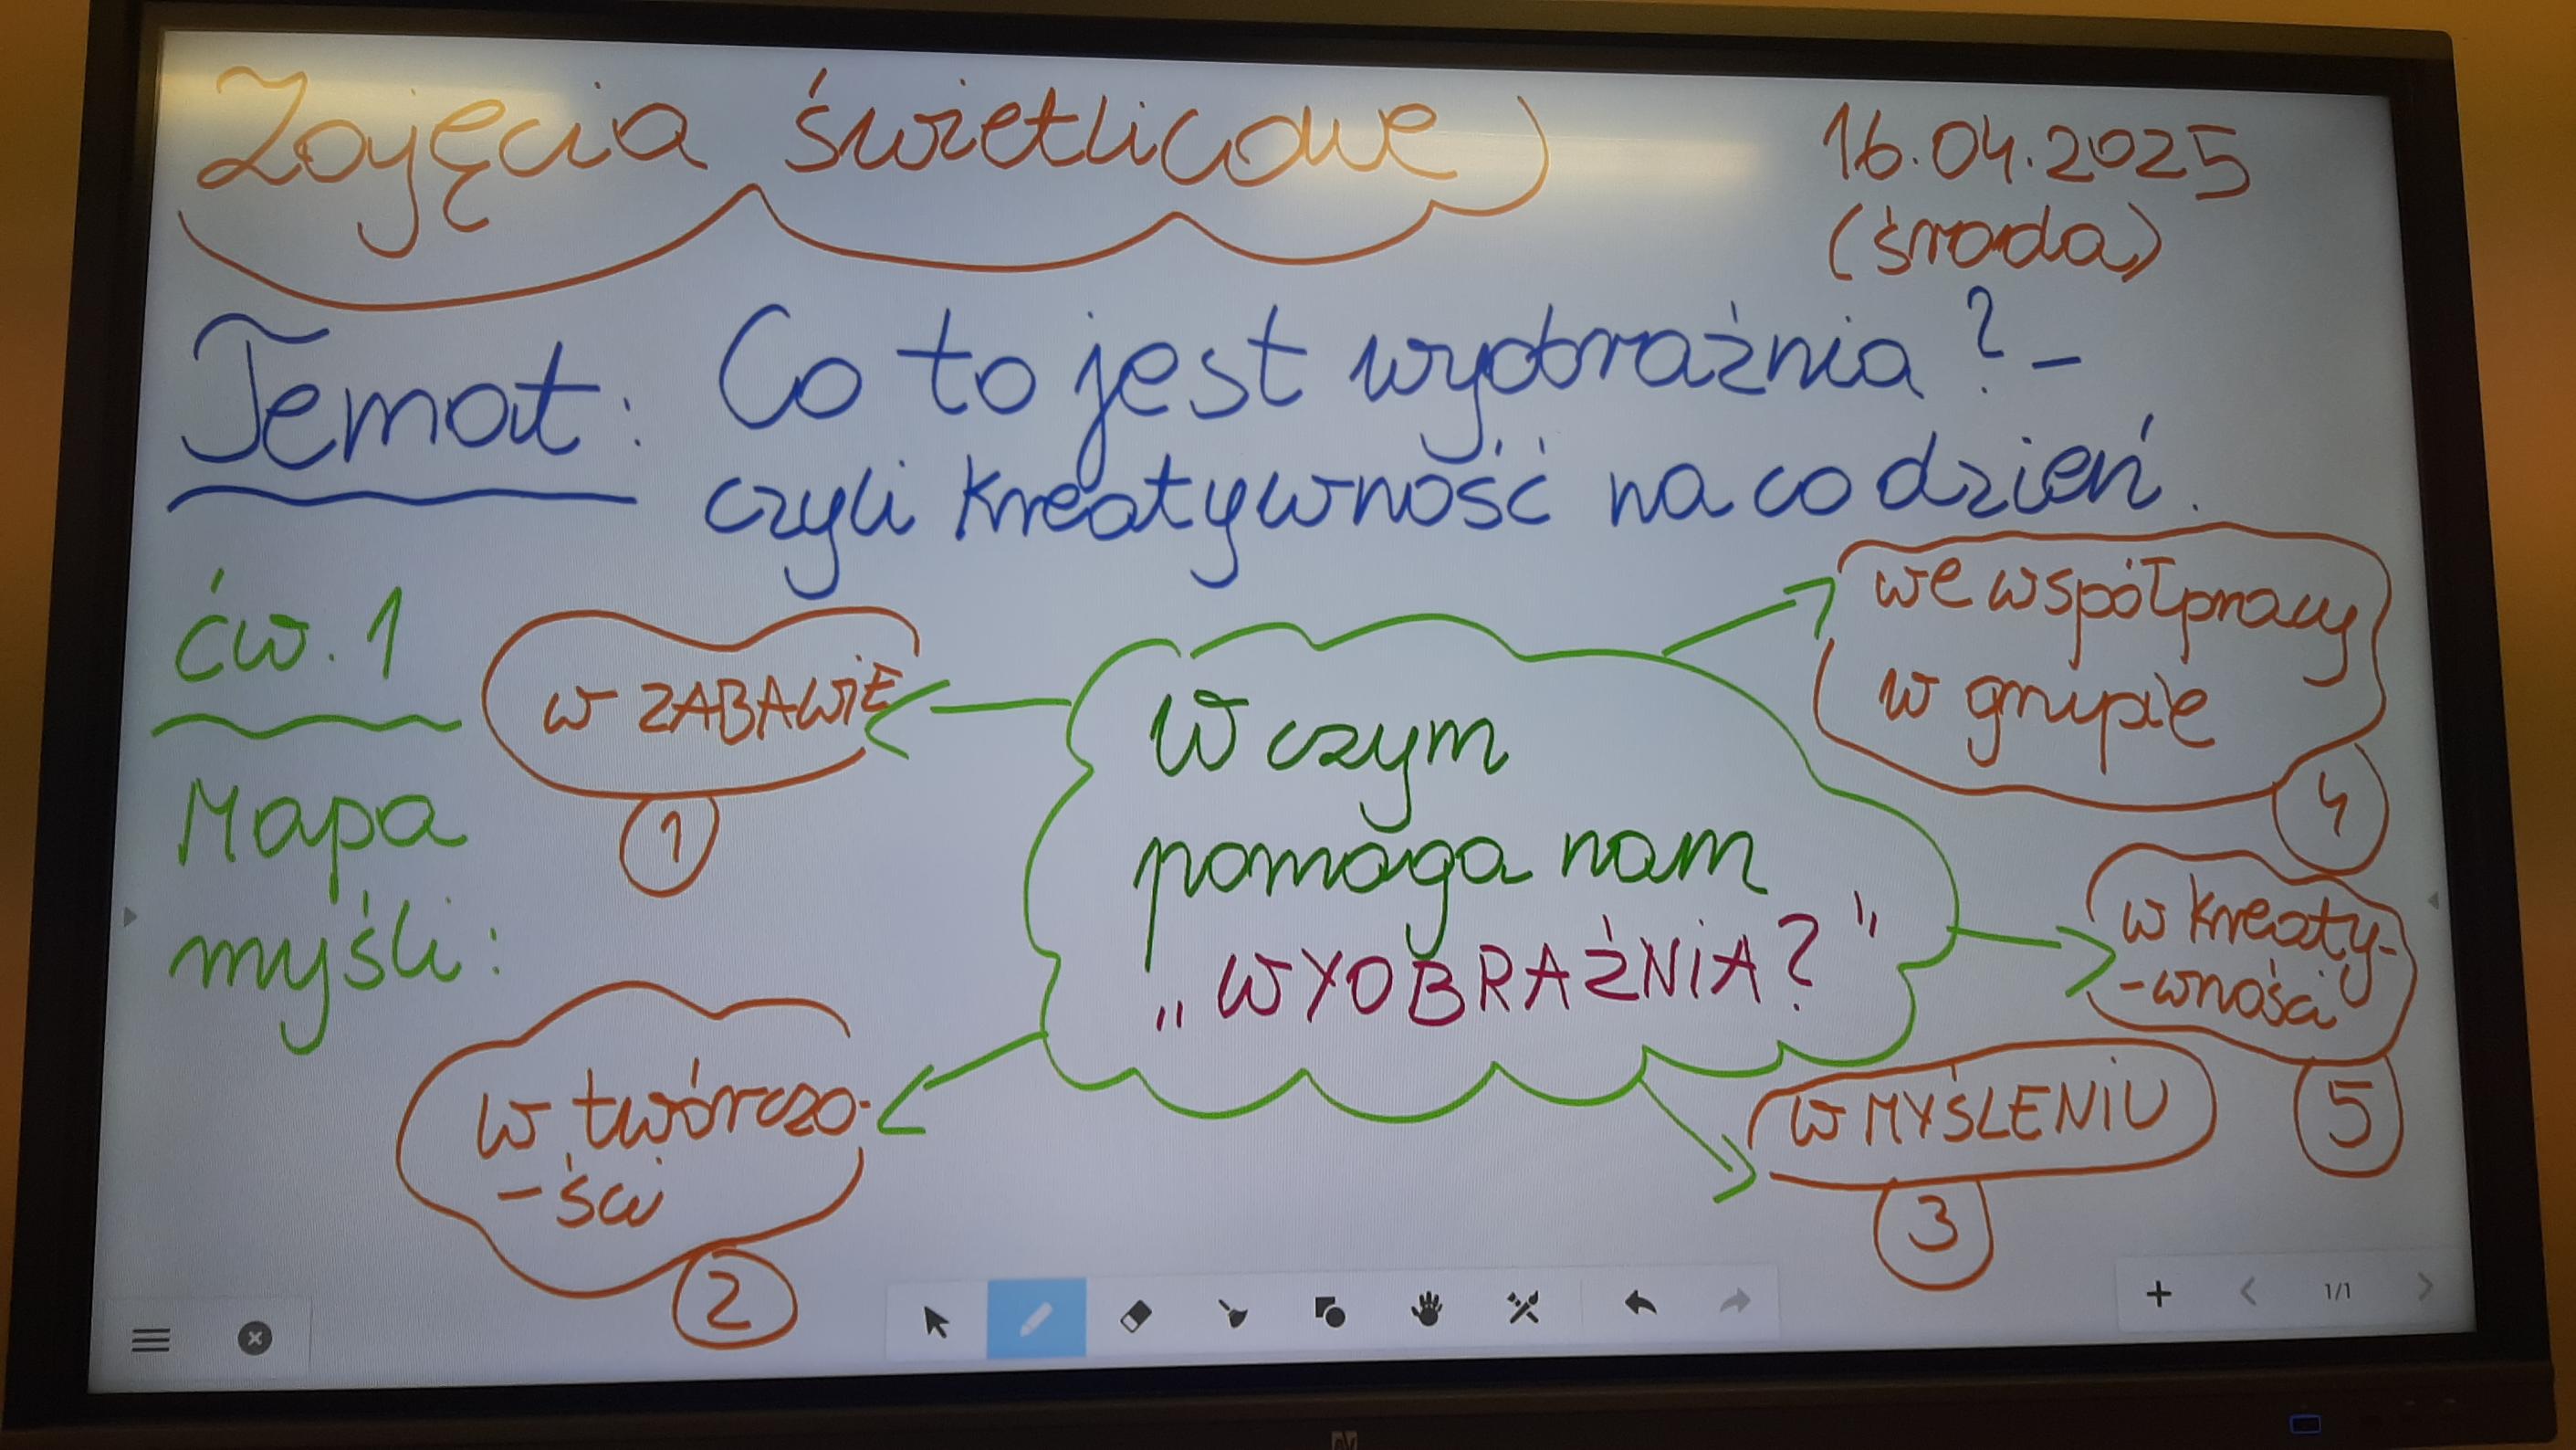 Zajęcia świetlicowe
16.04.2025
(środa)
Temat: Co to jest wyobraźnia? -
czyli kreatywność na co dzień.
ćw. 1
Mapa
myśli:
W czym
pomaga nam
„WYOBRAŹNIA?"
w ZABAWIE
1
w twórczo-
-ści
2
w MYŚLENIU
3
we współpracy
w grupie
4
w kreaty-
-wności
5
1/1